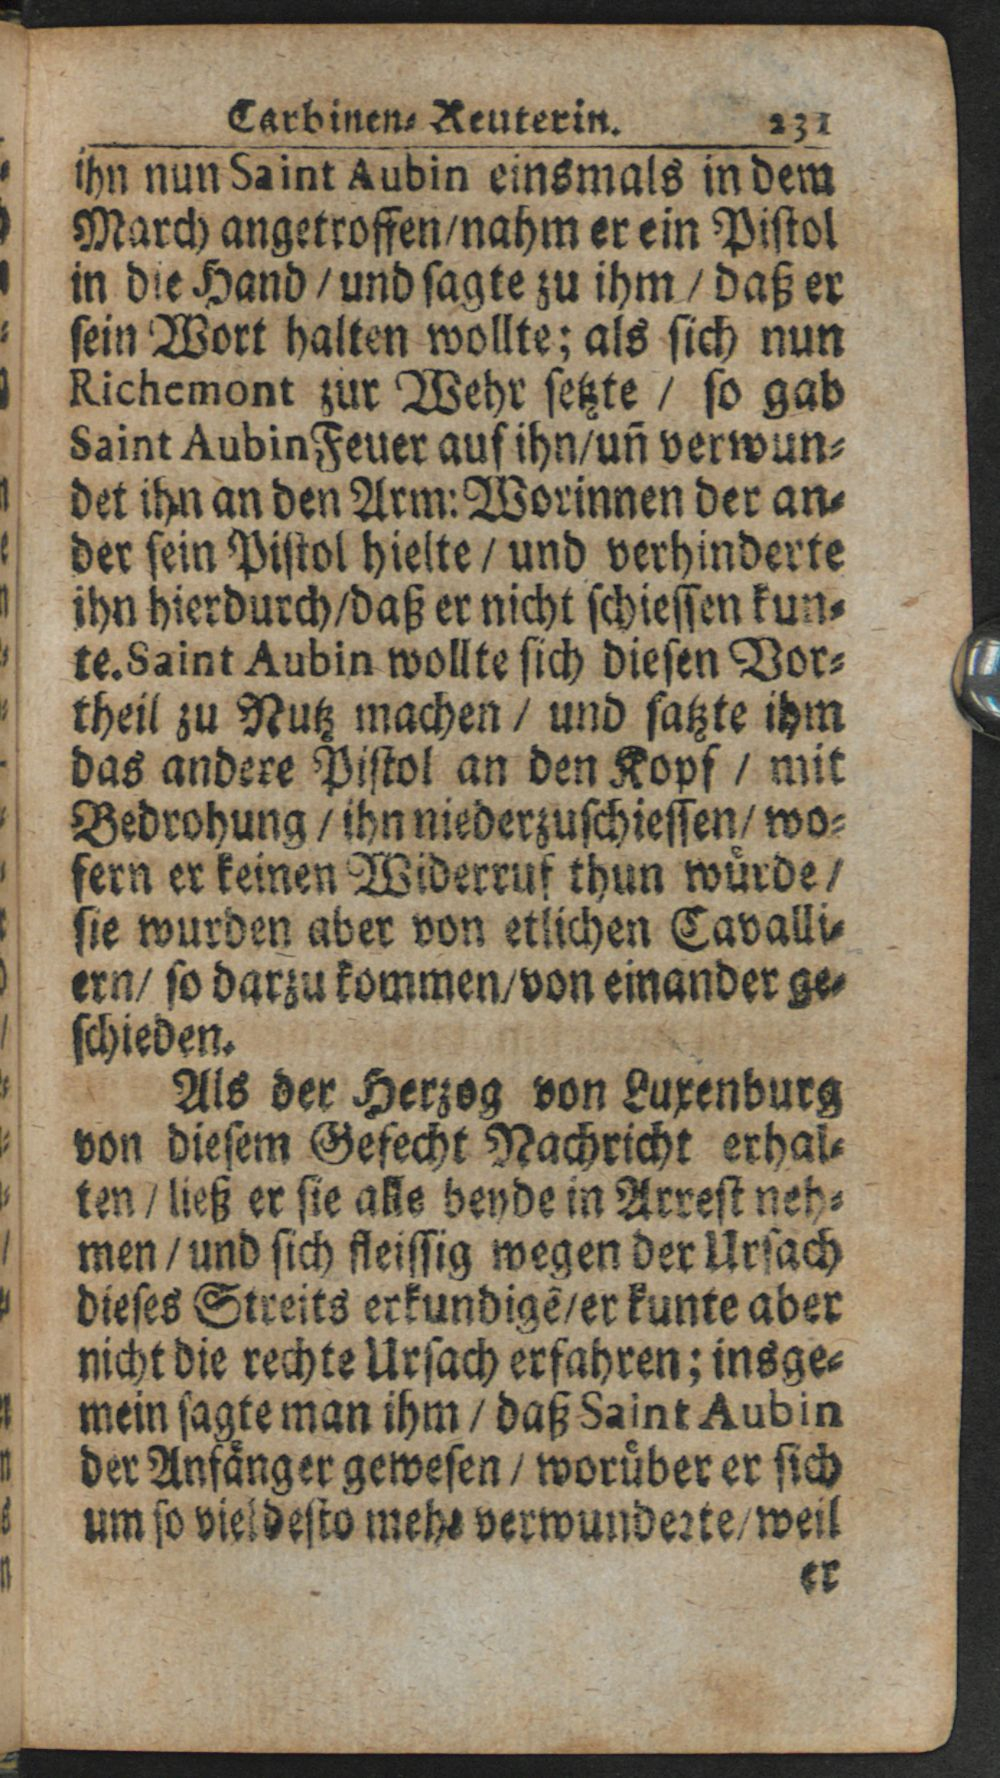 Carbinen- Reuterin. 231
ihn nun Saint Aubin einsmals in dem
March angetroffen/nahm er ein Pistol
in die Hand / und sagte zu ihm / daß er
sein Wort halten wollte; als sich nun
Richemont zur Wehr setzte / so gab
Saint Aubin Feuer auf ihn/uñ verwun-
det ihn an den Arm: Worinnen der an-
der sein Pistol hielte / und verhinderte
ihn hierdurch/daß er nicht schiessen kun-
te. Saint Aubin wollte sich diesen Vor-
theil zu Nutz machen / und satzte ihm
das andere Pistol an den Kopf / mit
Bedrohung / ihn niederzuschiessen/ wo-
fern er keinen Widerruf thun wuͤrde /
sie wurden aber von etlichen Cavalli-
ern/ so darzu kommen/von einander ge-
schieden.
Als der Herzog von Luxenburg
von diesem Gefecht Nachricht erhal-
ten / ließ er sie alle beyde in Arrest neh-
men / und sich fleissig wegen der Ursach
dieses Streits erkundigē/er kunte aber
nicht die rechte Ursach erfahren; insge-
mein sagte man ihm / daß Saint Aubin
der Anfaͤnger gewesen / woruͤber er sich
um so viel desto mehr verwunderte/weil
er